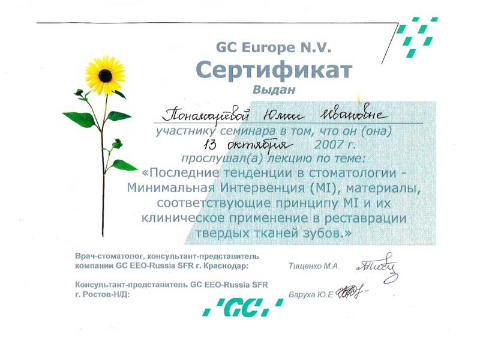 GC Europe N.V.
Сертификат
Выдан
Пономаревой Юлии Ивановне
участнику семинара в том, что он (она)
13 октября 2007 г.
прослушал(а) лекцию по теме:
«Последние тенденции в стоматологии -
Минимальная Интервенция (MI), материалы,
соответствующие принципу MI и их
клиническое применение в реставрации
твердых тканей зубов.»
Врач-стоматолог, консультант-представитель
компании GC EEO-Russia SFR г. Краснодар: Тищенко М.А.
Консультант-представитель GC EEO-Russia SFR
г. Ростов-Н/Д: Варуха Ю.Е
GC